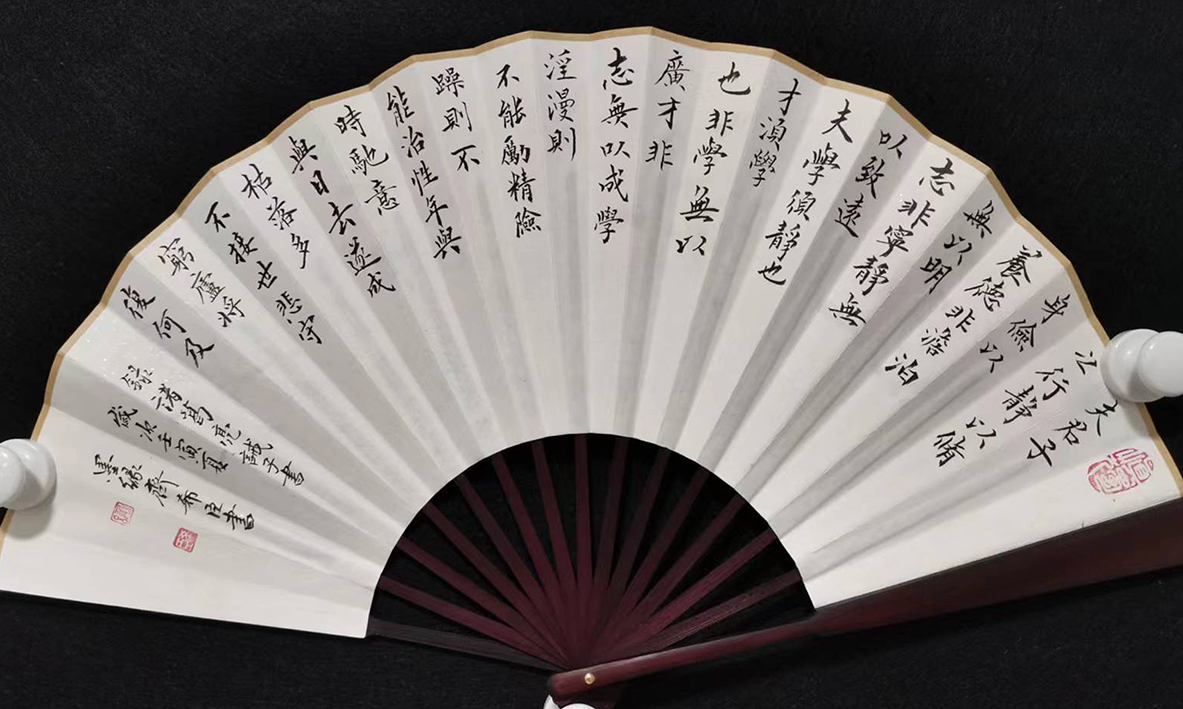 夫君子
之行靜以脩
身儉以
養德非澹泊
無以明
志非寧靜無
以致遠
夫學須靜也
才須學
也非學無以
廣才非
志無以成學
淫漫則
不能勵精險
躁則不
能治性年與
時馳意
與日去遂成
枯落多
不接世悲守
窮廬將
復何及
錄諸葛亮誡子書
歲次壬寅夏
墨緣齋希臣書